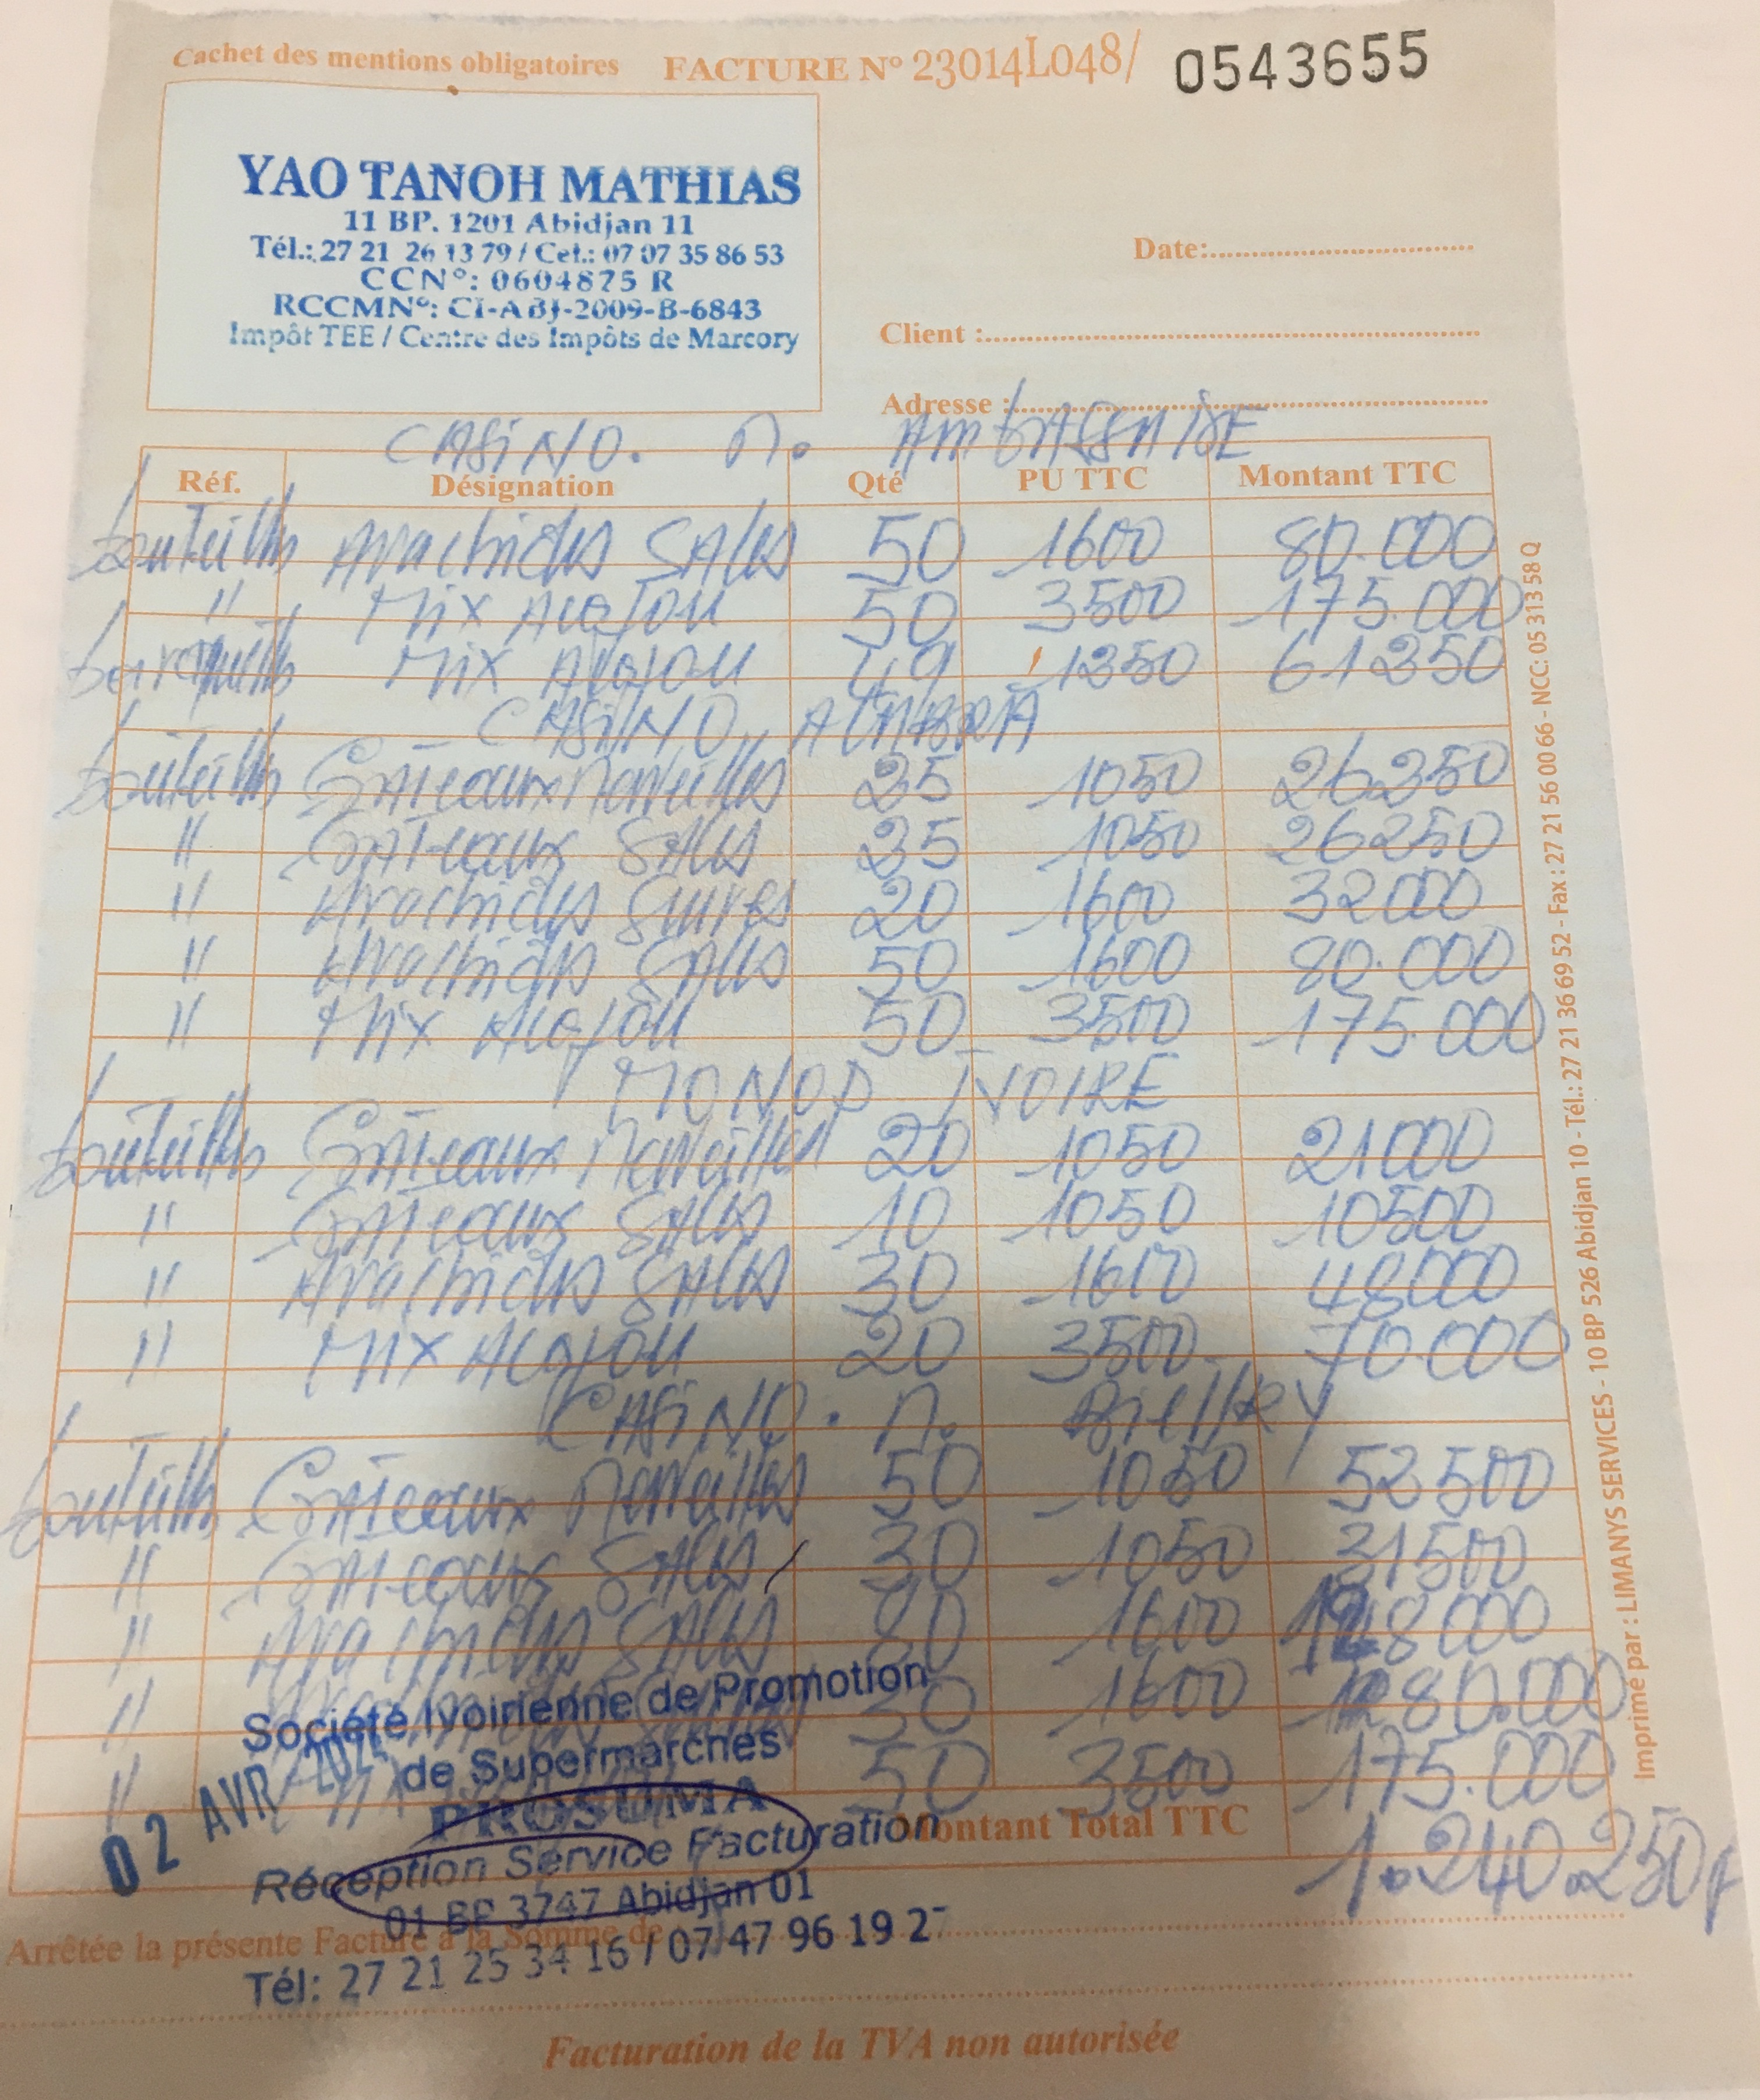 Cachet des mentions obligatoires FACTURE N° 23014L048/ 0543655
YAO TANOH MATHIAS
11 BP. 1201 Abidjan 11
Tél.: 27 21 26 13 79 / Cel.: 07 07 35 86 53
CCN°: 0604875 R
RCCMN°: CI-ABJ-2009-B-6843
Impôt TEE / Centre des Impôts de Marcory
Date:
Client :
Adresse :
CASINO. M. AMBASSADE
Réf. Désignation Qté PU TTC Montant TTC
bouteilles Arachides SAlés 50 1600 80.000
" Mix Acajou 50 3500 175.000
Mix Acajou 49 1250 61250
CASINO
bouteilles Gâteaux Merveilles 25 1050 26250
" Gâteaux SAlés 25 1050 26250
" Arachides Sucrés 20 1600 32000
" Arachides SAlés 50 1600 80.000
" Mix Acajou 50 3500 175.000
MONOP IVOIRE
bouteilles Gâteaux Merveilles 20 1050 21000
" Gâteaux SAlés 10 1050 10500
" Arachides SAlés 30 1600 48000
" Mix Acajou 20 3500 70.000
CASINO. M. BIETRY
bouteilles Gâteaux Merveilles 50 1050 52500
" Gâteaux SAlés 30 1050 31500
" Arachides SAlés 80 1600 128000
" 50 1600 80.000
" 50 3500 175.000
Montant Total TTC 1.240.250f
Société Ivoirienne de Promotion
de Supermarchés
02 AVR
PROSUMA
Réception Service Facturation
01 BP 3747 Abidjan 01
Arrêtée la présente Facture à la Somme de :
Tél: 27 21 25 34 16 / 07 47 96 19 27
Facturation de la TVA non autorisée
Imprimé par : LIMANYS SERVICES - 10 BP 526 Abidjan 10 - Tél.: 27 21 36 69 52 - Fax : 27 21 56 00 66 - NCC: 05 313 58 Q